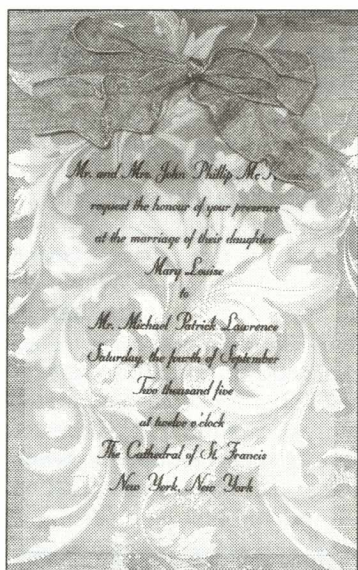 Mr. and Mrs. John Phillip
request the honour of your presence
at the marriage of their daughter
Mary Louise
to
Mr. Michael Patrick Lawrence
Saturday, the fourth of September
Two thousand five
at twelve o'clock
The Cathedral of St. Francis
New York, New York